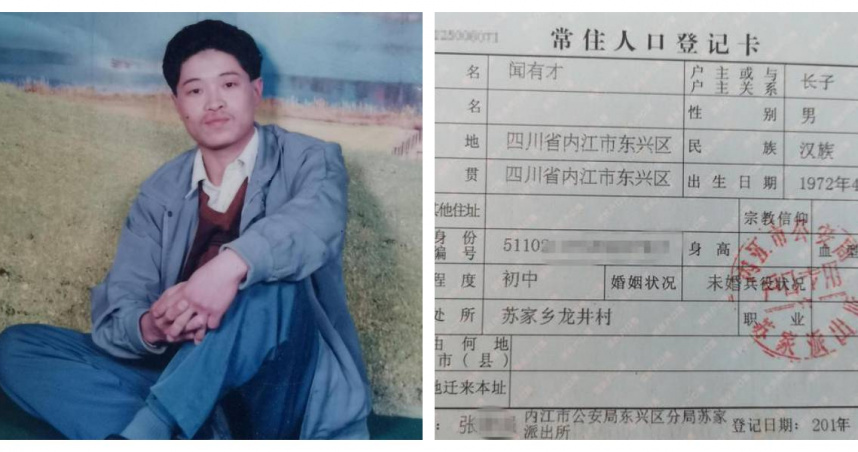 125006071
常住人口登记卡
名 闻有才 户主或与户主关系 长子
名 性别 男
地 四川省内江市东兴区 民族 汉族
贯 四川省内江市东兴区 出生日期 1972年4
其他住址 宗教信仰
身份编号 51102 身高 血型
程度 初中 婚姻状况 未婚 兵役状况
处所 苏家乡龙井村 职业
由何地
市(县)
他迁来本址
：张 内江市公安局东兴区分局苏家派出所 登记日期：201年
内江市公安局
户口专用
苏家派出